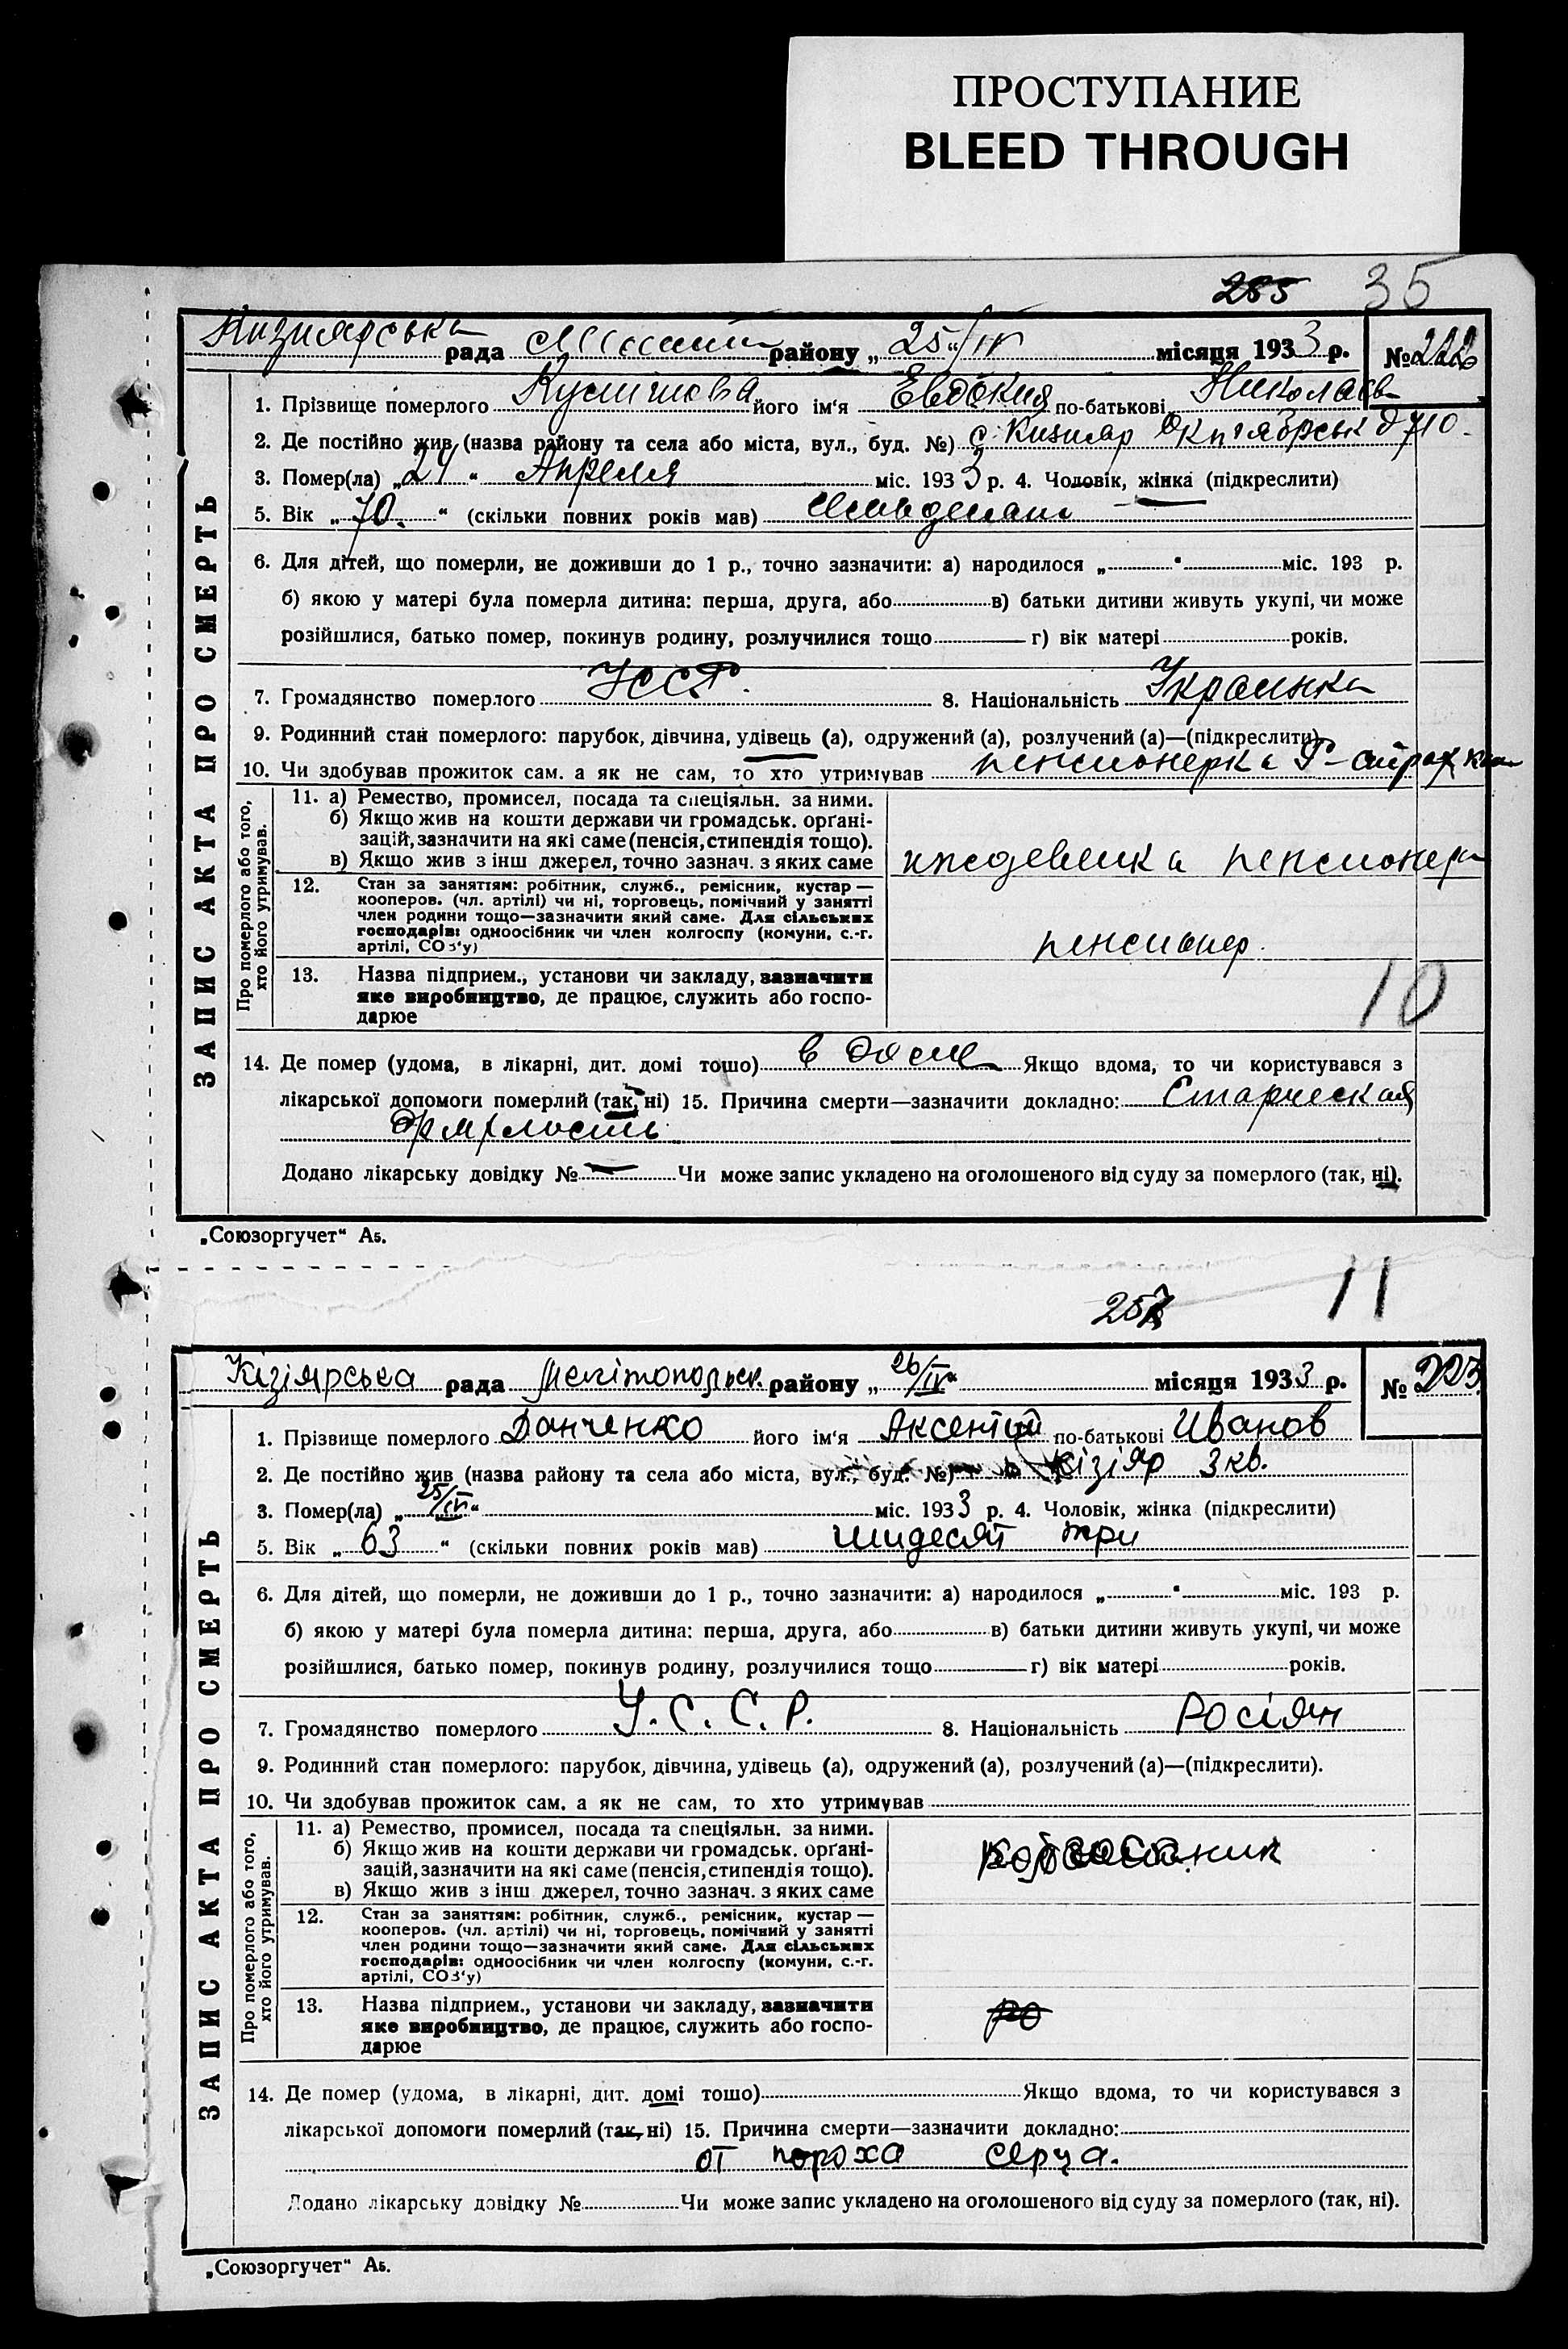 ПРОСТУПАНИЕ
BLEED THROUGH
285 35
рада району „25“/IV місяця 1933 р. № 222
1. Прізвище померлого його ім‘я Евдокия по-батькові Николаев
2. Де постійно жив (назва району та села або міста, вул., буд. №) с. Кизияр
3. Помер(ла) „ “ Апреля міс. 1933 р. 4. Чоловік, жінка (підкреслити)
5. Вік „70.“ (скільки повних років мав)
6. Для дітей, що померли, не доживши до 1 р., точно зазначити: а) народилося „ “ міс. 193 р.
б) якою у матері була померла дитина: перша, друга, або в) батьки дитини живуть укупі, чи може
розійшлися, батько помер, покинув родину, розлучилися тощо г) вік матері років.
7. Громадянство померлого 8. Національність Украинка
9. Родинний стан померлого: парубок, дівчина, удівець (а), одружений (а), розлучений (а)—(підкреслити)
10. Чи здобував прожиток сам, а як не сам, то хто утримував пенсионерка
ЗАПИС АКТА ПРО СМЕРТЬ
Про померлого або того, хто його утримував.
11. а) Ремество, промисел, посада та спеціяльн. за ними.
б) Якщо жив на кошти держави чи громадськ. орґані-
зацій, зазначити на які саме (пенсія, стипендія тощо).
в) Якщо жив з інш джерел, точно зазнач. з яких саме
иждевенка пенсионер
12. Стан за заняттям: робітник, служб., ремісник, кустар —
кооперов. (чл. артілі) чи ні, торговець, помічний у занятті
член родини тощо—зазначити який саме. Для сільських
господарів: одноосібник чи член колгоспу (комуни, с.-г.
артілі, СОЗ‘у)
пенсионер.
13. Назва підприєм., установи чи закладу, зазначити
яке виробництво, де працює, служить або госпо-
дарює
10
14. Де помер (удома, в лікарні, дит. домі тошо) в доме Якщо вдома, то чи користувався з
лікарської допомоги померлий (так, ні) 15. Причина смерти—зазначити докладно: Старческая
дряхлость
Додано лікарську довідку № Чи може запис укладено на оголошеного від суду за померлого (так, ні).
„Союзоргучет“ А5.
257 11
Кізіярська рада Мелітопольск. району „26/IV“ місяця 1933 р. № 223.
1. Прізвище померлого Данченко його ім‘я Аксентий по-батькові Иванов
2. Де постійно жив (назва району та села або міста, вул., буд. №) Кізіяр 3 кв.
3. Помер(ла) „25/IV“ міс. 1933 р. 4. Чоловік, жінка (підкреслити)
5. Вік „63“ (скільки повних років мав) шидесят три
6. Для дітей, що померли, не доживши до 1 р., точно зазначити: а) народилося „ “ міс. 193 р.
б) якою у матері була померла дитина: перша, друга, або в) батьки дитини живуть укупі, чи може
розійшлися, батько помер, покинув родину, розлучилися тощо г) вік матері років.
7. Громадянство померлого У.С.С.Р. 8. Національність Росіян
9. Родинний стан померлого: парубок, дівчина, удівець (а), одружений (а), розлучений (а)—(підкреслити).
10. Чи здобував прожиток сам, а як не сам, то хто утримував
ЗАПИС АКТА ПРО СМЕРТЬ
Про померлого або того, хто його утримував.
11. а) Ремество, промисел, посада та спеціяльн. за ними.
б) Якщо жив на кошти держави чи громадськ. орґані-
зацій, зазначити на які саме (пенсія, стипендія тощо).
в) Якщо жив з інш джерел, точно зазнач. з яких саме
12. Стан за заняттям: робітник, служб., ремісник, кустар —
кооперов. (чл. артілі) чи ні, торговець, помічний у занятті
член родини тощо—зазначити який саме. Для сільських
господарів: одноосібник чи член колгоспу (комуни, с.-г.
артілі, СОЗ‘у)
13. Назва підприєм., установи чи закладу, зазначити
яке виробництво, де працює, служить або госпо-
дарює
ро
14. Де помер (удома, в лікарні, дит. домі тошо) Якщо вдома, то чи користувався з
лікарської допомоги померлий (так, ні) 15. Причина смерти—зазначити докладно:
от пороха серца.
Додано лікарську довідку № Чи може запис укладено на оголошеного від суду за померлого (так, ні).
„Союзоргучет“ А5.